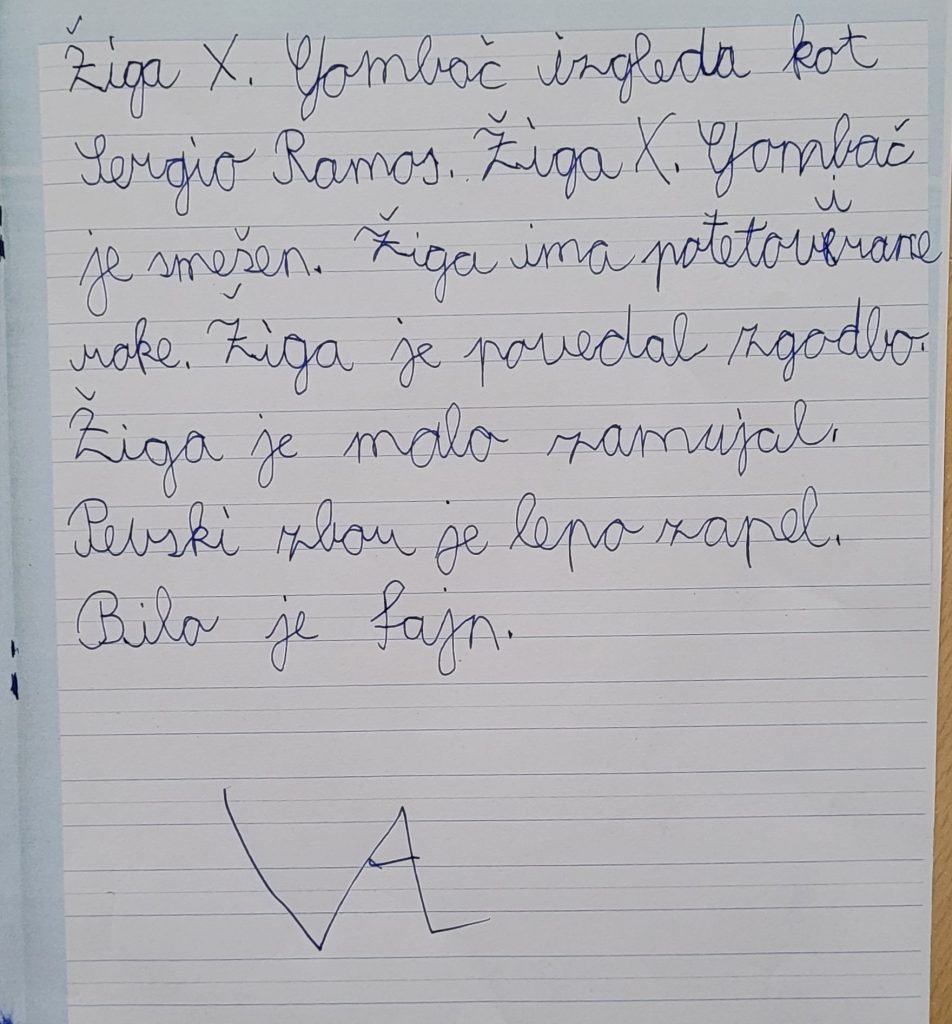 Žiga X. Gombač izgleda kot
Sergio Ramos. Žiga X. Gombač
je smešen. Žiga ima potetovirane
roke. Žiga je povedal zgodbo.
Žiga je malo zamujal.
Pevski zbor je lepo zapel.
Bilo je fajn.
VAL